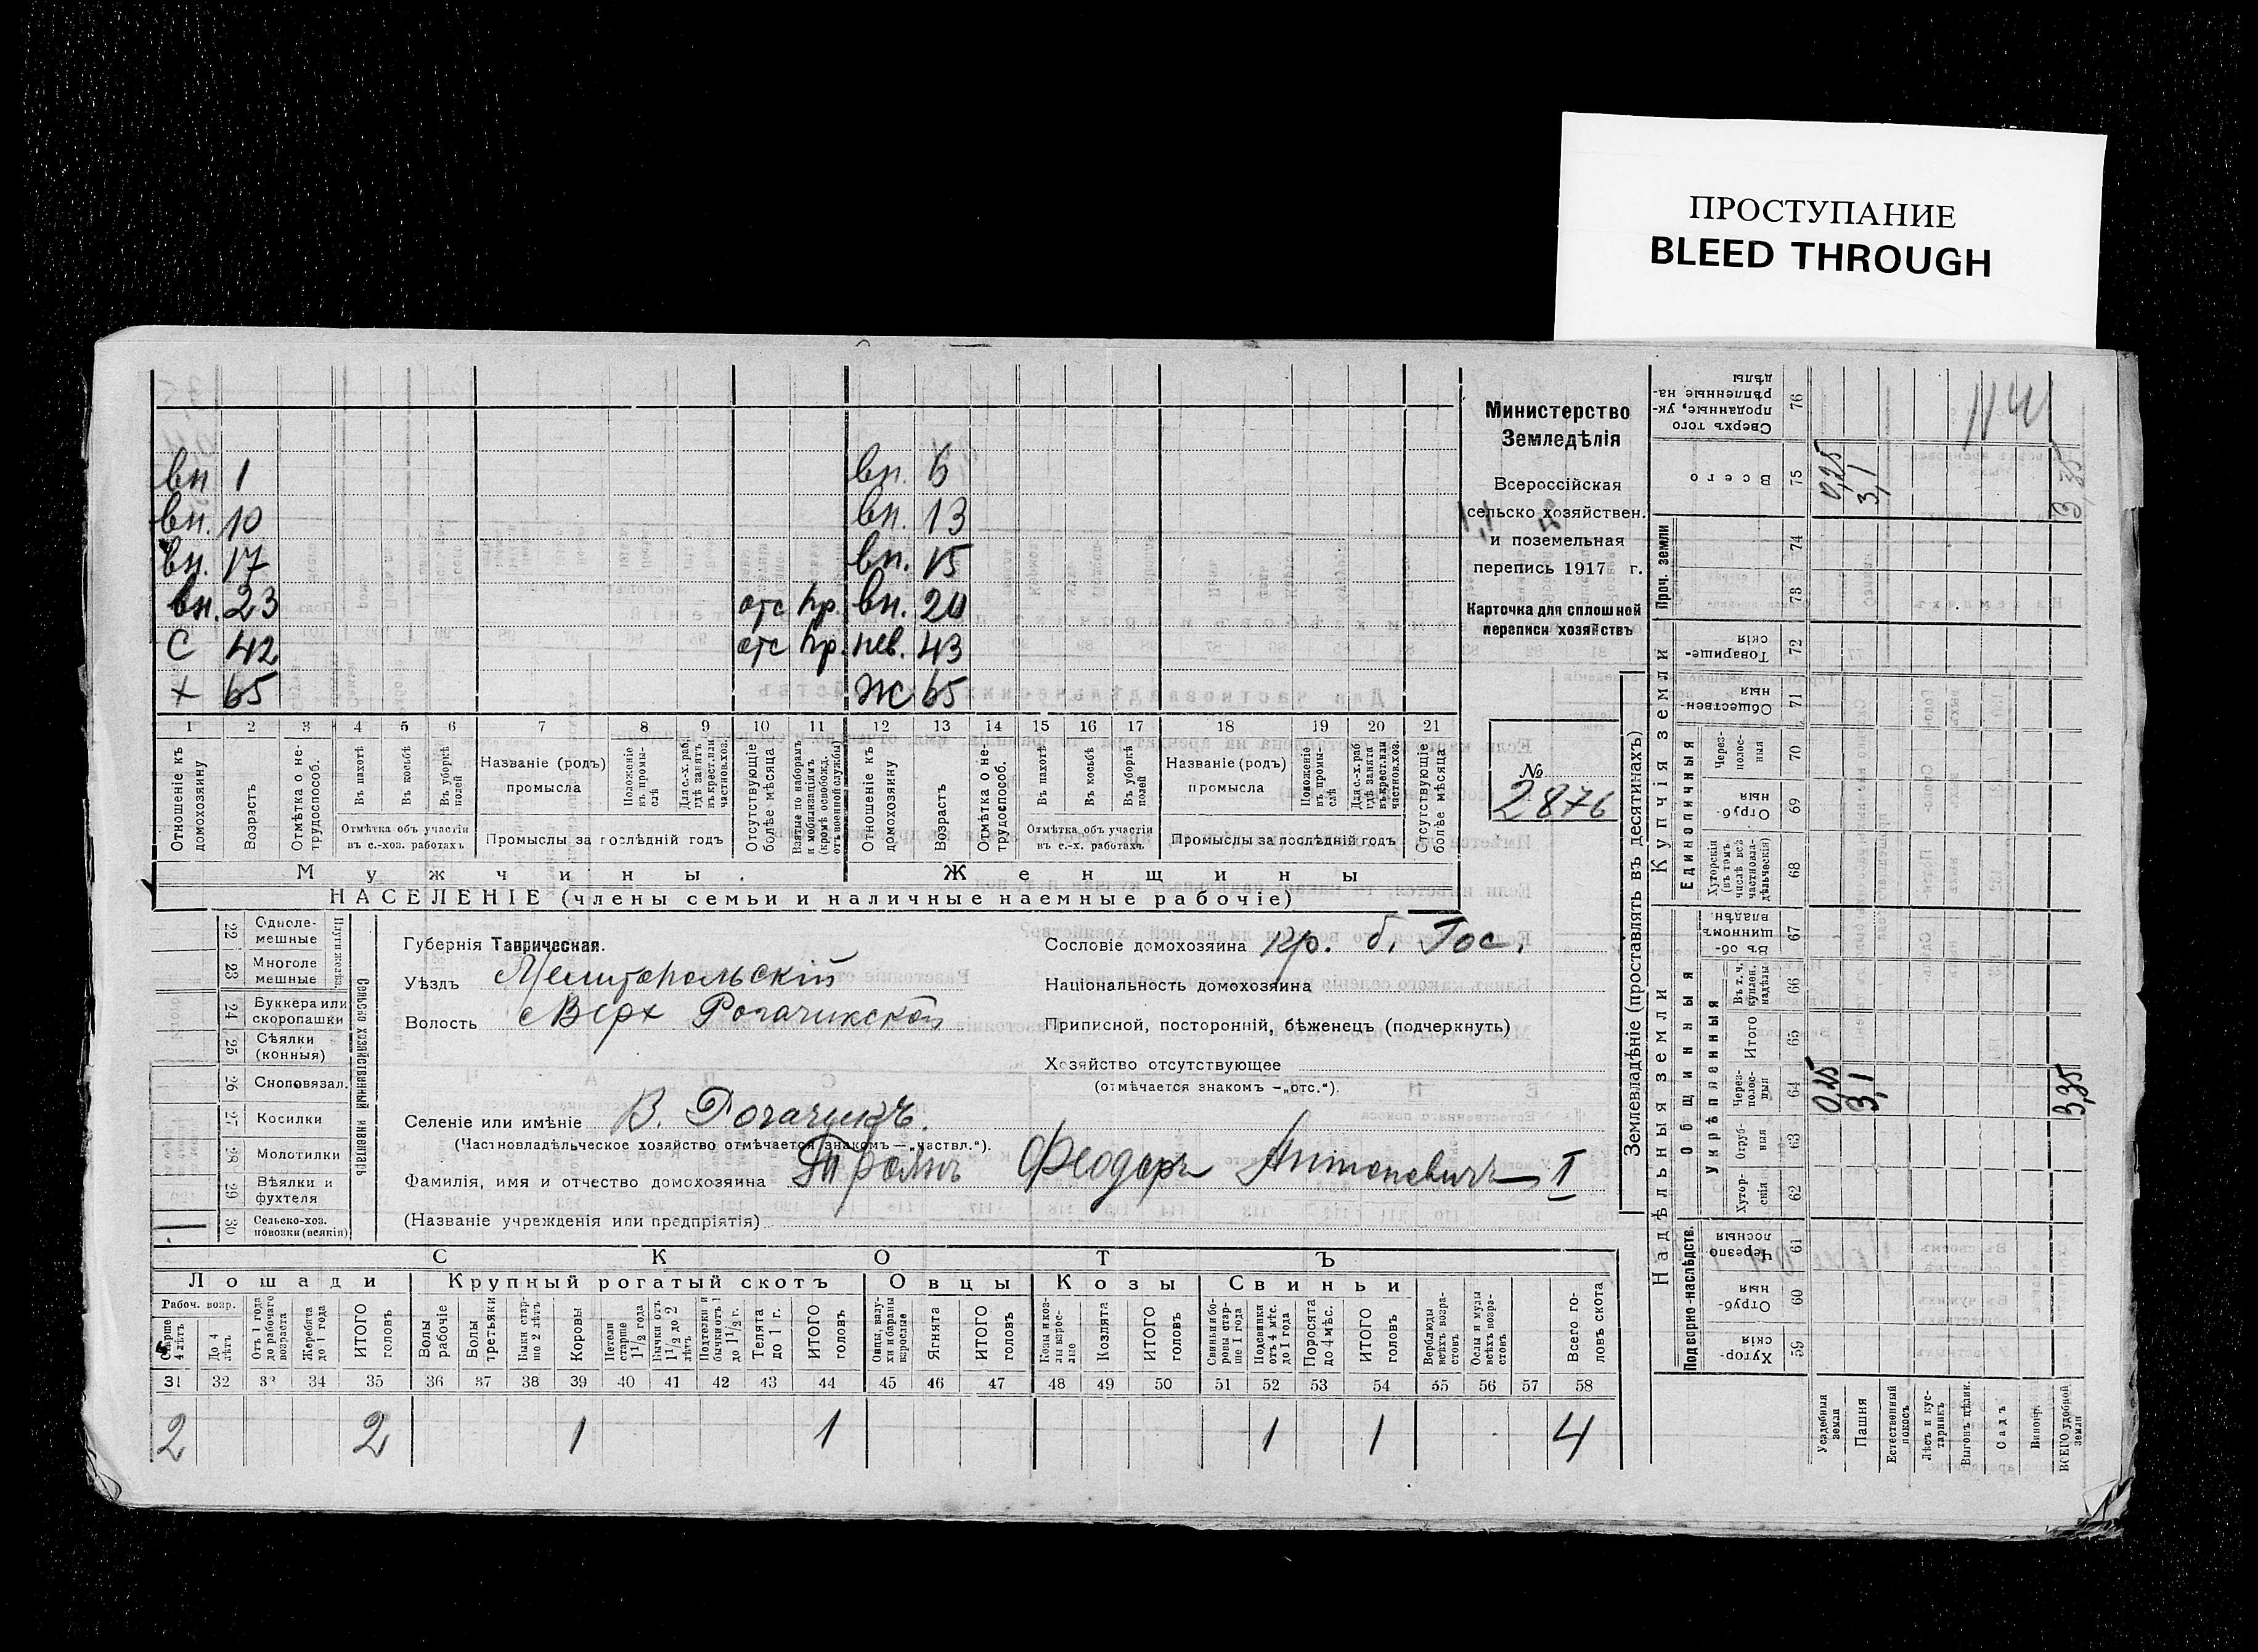 ПРОСТУПАНИЕ
BLEED THROUGH
Министерство
Земледѣлія
Всероссійская
сельско хозяйствен.
и поземельная
перепись 1917 г.
Карточка для сплошной
переписи хозяйствъ
№
2876
вн 1 вн. 6
вн. 10 вн. 13
вн. 17 вн. 15
вн. 23 отс пр. вн. 20
С 42 отс пр. нев. 43
х 65 Ж 65
1 2 3 4 5 6 7 8 9 10 11 12 13 14 15 16 17 18 19 20 21
Отношеніе къ домохозяину
Возрастъ
Отмѣтка о не-трудоспособ.
Въ пахотѣ
Въ косьбѣ
Въ уборкѣ полей
Отмѣтка объ участіи
въ с.-хоз. работахъ
Названіе (родъ)
промысла
Положеніе въ промы-слѣ
Для с.-х. раб. гдѣ занятъ въ крест. или частнов. хоз.
Промыслы за послѣдній годъ
Отсутствующіе болѣе мѣсяца
Взятые по наборамъ и мобилизаціямъ (кромѣ освобожд. отъ военной службы)
Отношеніе къ домохозяину
Возрастъ
Отмѣтка о не-трудоспособ.
Въ пахотѣ
Въ косьбѣ
Въ уборкѣ полей
Отмѣтка объ участіи
въ с.-х. работахъ
Названіе (родъ)
промысла
Положеніе въ промы-слѣ
Для с.-х. раб. гдѣ занята въ крест. или частнов. хоз.
Промыслы за послѣдній годъ
Отсутствующіе болѣе мѣсяца
Мужчины. Женщины
НАСЕЛЕНІЕ (члены семьи и наличные наемные рабочіе)
22 Одноле-мешные
23 Многоле мешные
24 Буккера или скоропашки
25 Сѣялки (конныя)
26 Сноповязал.
27 Косилки
28 Молотилки
29 Вѣялки и фухтеля
30 Сельско-хоз. повозки (всякія)
Сельско хозяйственный инвентарь
Губернія Таврическая.
Уѣздъ Мелитопольскій
Волость Верх Рогачикской
Селеніе или имѣніе В. Рогачикъ.
(Частновладѣльческое хозяйство отмѣчается знакомъ — „частвл.“).
Фамилія, имя и отчество домохозяина Феодоръ Антоновичъ I
(Названіе учрежденія или предпріятія)
Сословіе домохозяина Кр. б. Гос.
Національность домохозяина
Приписной, посторонній, бѣженецъ (подчеркнуть)
Хозяйство отсутствующее
(отмѣчается знакомъ —„отс.“).
СКОТЪ
Лошади Крупный рогатый скотъ Овцы Козы Свиньи
Рабоч. возр.
Старше 4 лѣтъ
До 4 лѣтъ
Отъ 1 года до рабочаго возраста
Жеребята до 1 года
ИТОГО головъ
Волы рабочіе
Волы третьяки
Быки стар-ше 2 лѣтъ
Коровы
Нетели старше 1 1/2 года
Бычки отъ 1 1/2 до 2 лѣтъ
Подтелки и бычки отъ 1 до 1 1/2 г.
Телята до 1 г.
ИТОГО головъ
Овцы, валу-хи и бараны взрослые
Ягнята
ИТОГО головъ
Козы и коз-лы взрос-лые
Козлята
ИТОГО головъ
Свиньи и бо-ровы стар-ше 1 года
Подсвинки отъ 4 мѣс. до 1 года
Поросята до 4 мѣс.
ИТОГО головъ
Верблюды всѣхъ возра-стовъ
Ослы и мулы всѣхъ возра-стовъ
Всего го-ловъ скота
31 32 33 34 35 36 37 38 39 40 41 42 43 44 45 46 47 48 49 50 51 52 53 54 55 56 57 58
2 2 1 1 1 1 4
Землевладѣніе (проставлять въ десятинахъ)
Надѣльныя земли
Купчія земли
Проч. земли
Подворно-наслѣдств.
Общинныя
Укрѣпленныя
Единоличныя
Сверхъ того проданные, ук-рѣпленные на-дѣлы 76
Всего 75 0,25 3,1 3,35
74
73
Товарище-скія 72
Обществен-ныя 71
Через-полос-ныя 70
Отруб-ныя 69
Хуторскія (въ томъ числѣ всѣ частновла-дѣльческія) 68
Въ об-щинномъ владѣн. 67
Въ т. ч. куплен. надѣлы 66
Итого 65
Через-полос-ныя 64 0,25 3,1 3,35
Отруб-ныя 63
Хутор-скія 62
Черезпо-лосныя 61
Отруб-ныя 60
Хутор-скія 59
Усадебныя земли
Пашня
Естественный покосъ
Лѣсъ и кус-тарникъ
Выгонъ цѣлик.
Садъ
Виногр.
ВСЕГО удобной земли